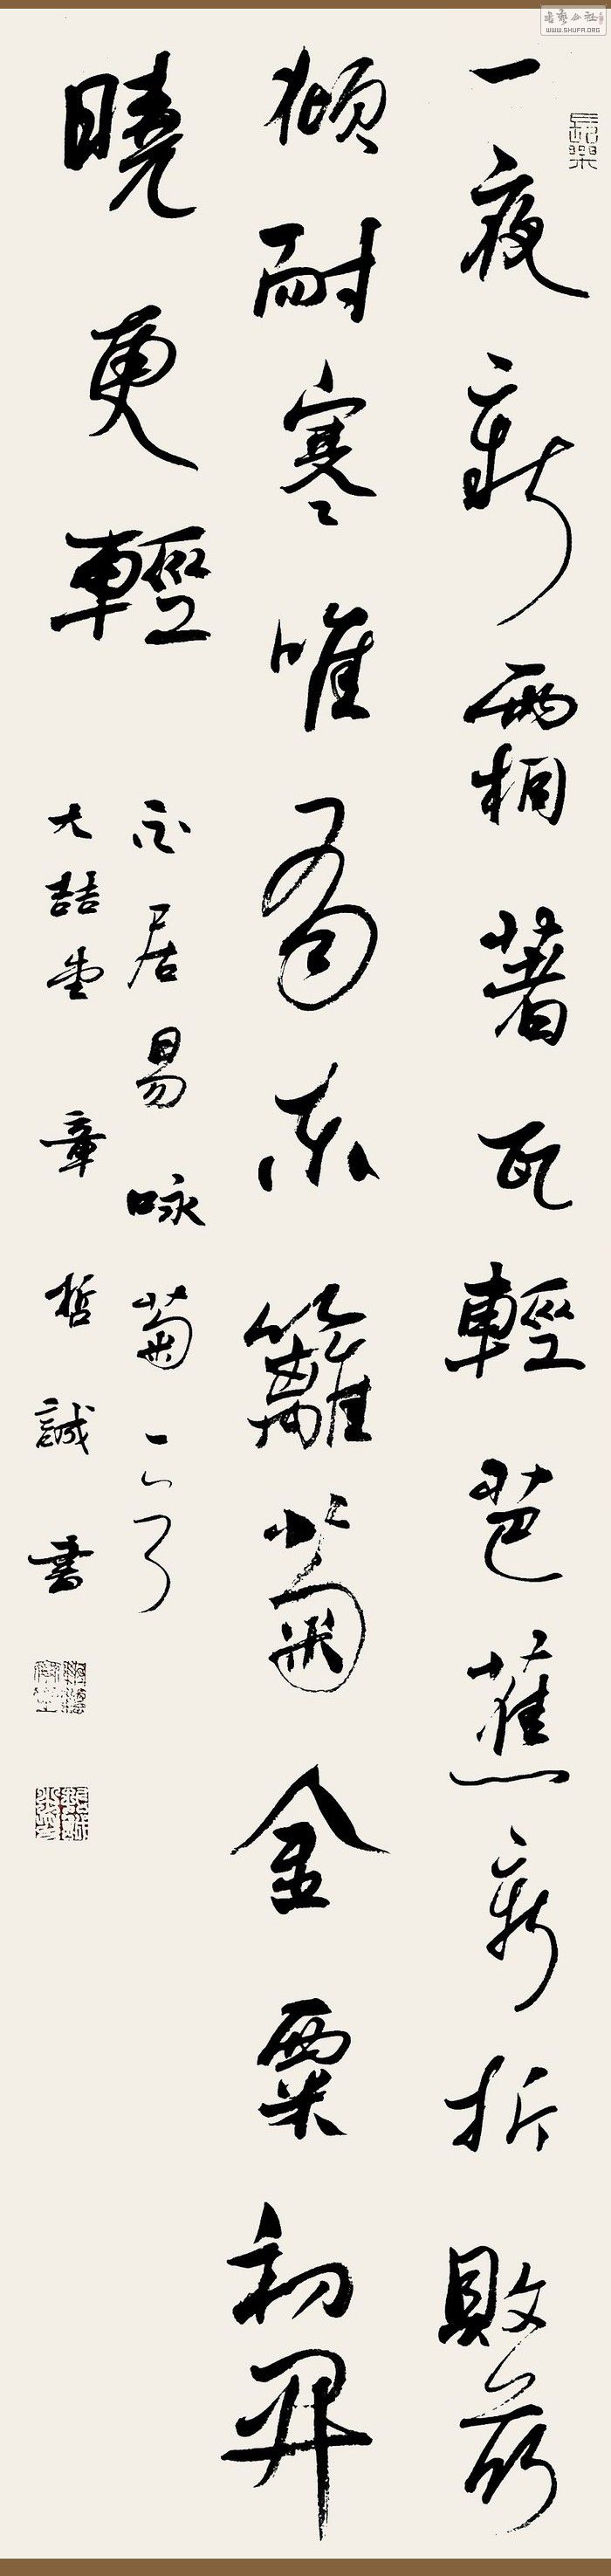 书艺公社
WWW.SHUFA.ORG
長樂
一夜新霜著瓦輕芭蕉新折敗荷
傾耐寒唯有東籬菊金粟初開
曉更輕
白居易咏菊一首
大喆堂 章哲誠書